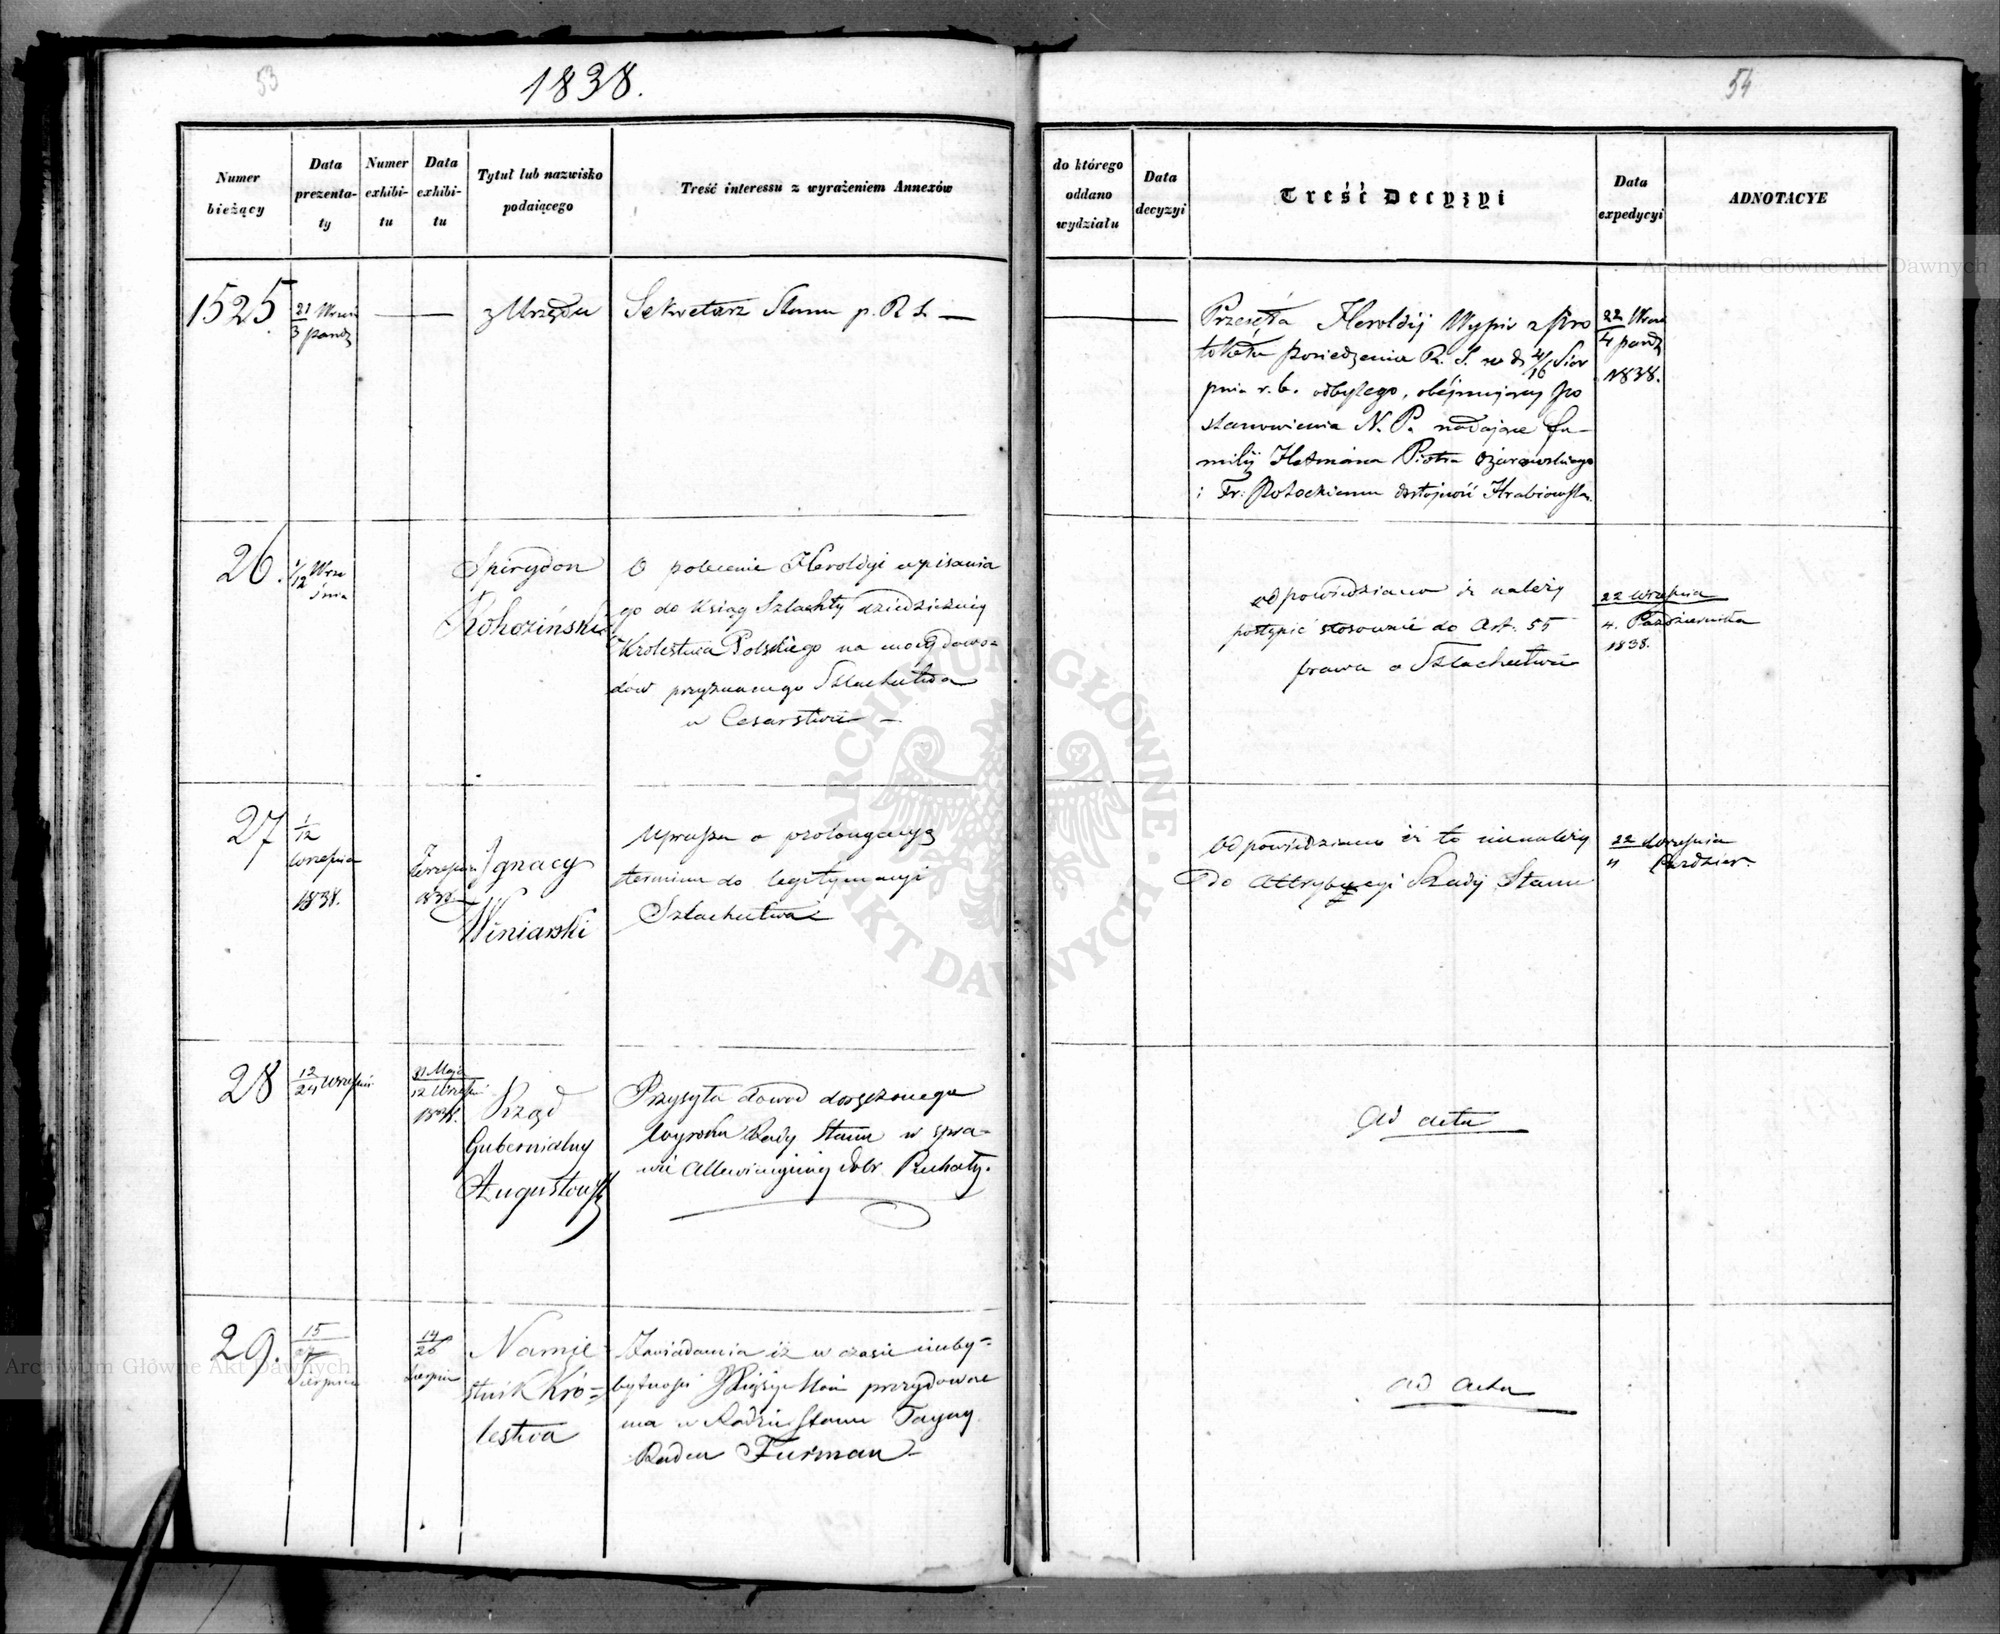 53
1838.
54
Numer bieżący
Data prezenta-ty
Numer exhibi-tu
Data exhibi-tu
Tytuł lub nazwisko podaiącego
Treść interessu z wyrażeniem Annexów
do którego oddano wydziału
Data decyzyi
Treść Decyzyi
Data expedycyi
ADNOTACYE
1525
21 Wrześ
3 Pazdz
z Urzędu
Sekretarz Stanu p. R S. —
Przesyła Heroldij Wypis z Pro
tokułu Posiedzenia R. S. w d. 4/16 Sier
pnia r. b. odbytego, obejmujący Po
stanowienia N. P. nadające fa-
milij Hetmana Piotra Ożarowskiego
i Fr: Potockiemu dostojność Hrabiowską.
22 Wrze
4 pazdz
1838.
26.
1/12 Wrze
śnia
Spirydon
Rohoziński
O polecenie Heroldyi wpisania
go do Ksiąg Szlachty dziedzicznej
Królestwa Polskiego na mocy dowo=
dów przyznanego Szlachectwa
w Cesarstwie —
odpowiedziano iż należy
postąpić stosownie do Art. 55
prawa o Szlachectwie
22 września
4. Października
1838.
27
1/12
września
1838.
Września
1838
Ignacy
Winiarski
Uprasza o prolongacyą
terminu do legitymacyi
Szlachectwa
Odpowiedziano iż to nienależy
do Attrybucyi Rady Stanu
22 Września
4 Pazdzier
28
12/24 Wrześni
31 Maja
12 Wrześni
1838.
Rząd
Gubernialny
Augustowski
Przysyła dowód doręczonego
Wyroku Rady Stanu w spra-
wie Allewiacyjnej dobr Puchały.
Ad acta
29.
15
27
Sierpnia
14
26
Sierpnia
Namie
stnik Kró=
lestwa
Zawiadamia iż w czasie nieby=
bytności Jego Xiążęcej Mości prezydować
ma w Radzie Stanu Tayny
Radca Furman —
ad acta
Archiwum Główne Akt Dawnych
ARCHIWUM GŁÓWNE AKT DAWNYCH
Archiwum Główne Akt Dawnych